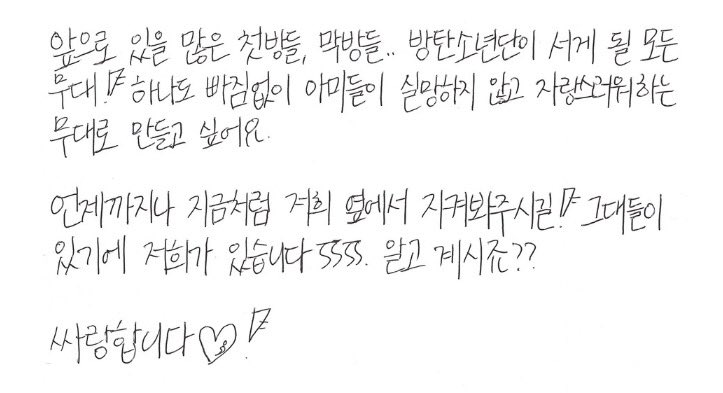 앞으로 있을 많은 첫방들, 막방들.. 방탄소년단이 서게 될 모든
무대! 하나도 빠짐없이 아미들이 실망하지 않고 자랑쓰러워하는
무대로 만들고 싶어요.
언제까지나 지금처럼 저희 옆에서 지켜봐주시길! 그대들이
있기에 저희가 있습니다 ㅎㅎㅎㅎ. 알고 계시죠??
싸랑합니다♡!